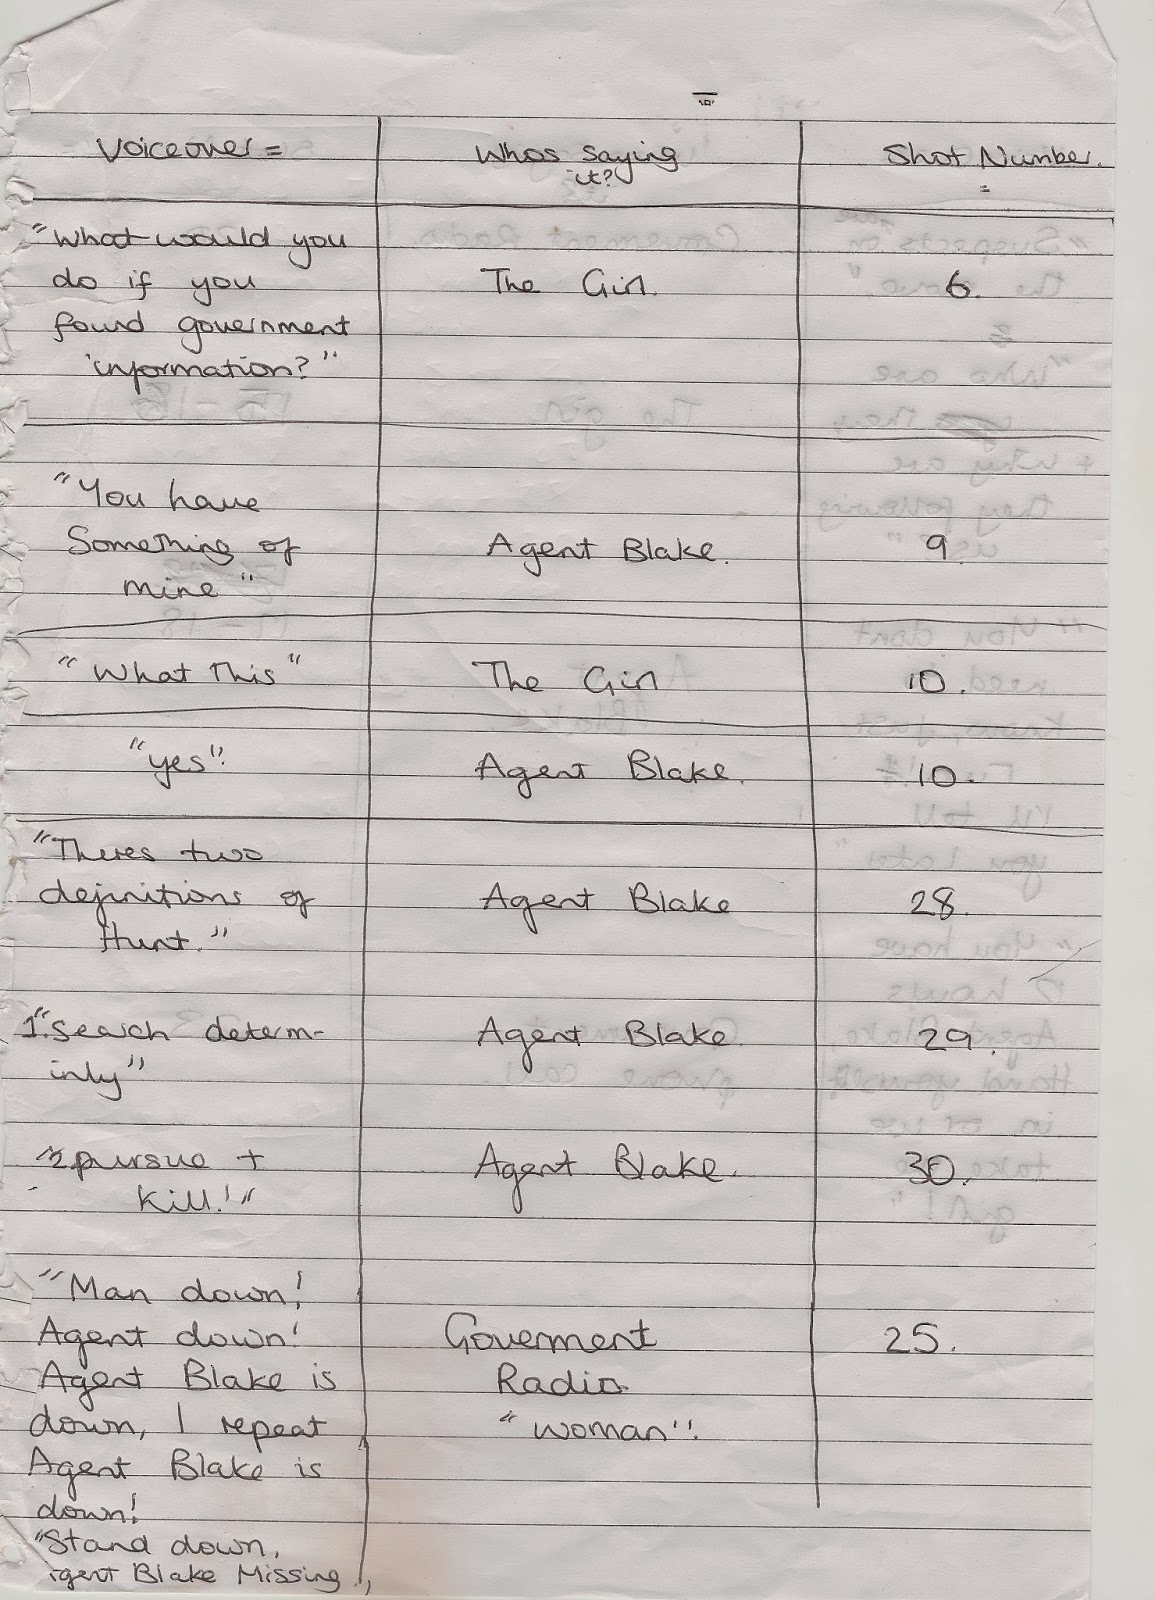 Voiceover =
Whos saying
it?
Shot Number.
"What would you
do if you
found government
information?"
The Girl.
6.
"You have
Something of
mine"
Agent Blake.
9.
"What This"
The Girl
10.
"yes".
Agent Blake.
10.
"Theres two
definitions of
Hunt."
Agent Blake
28.
1."Search determ-
inly"
Agent Blake.
29.
"2 pursue +
kill!"
Agent Blake.
30.
"Man down!
Agent down!
Agent Blake is
down, I repeat
Agent Blake is
down!
"Stand down,
Agent Blake Missing.,
Goverment
Radio.
"woman".
25.